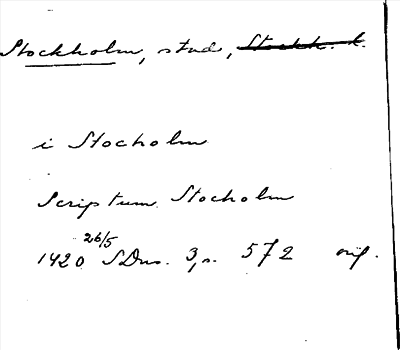 Stockholm, stad, Stockh. l.
i Stocholm
Scriptum Stocholm
1420 26/5 SDns. 3, s. 572 orig.